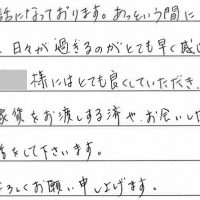 話になっております。あっという間に
、日々が過ぎるのがとても早く感じ
様にはとても良くしていただき、
家賃をお渡しする済や、お会いした
話をして下さいます。
ろしくお願い申し上げます。